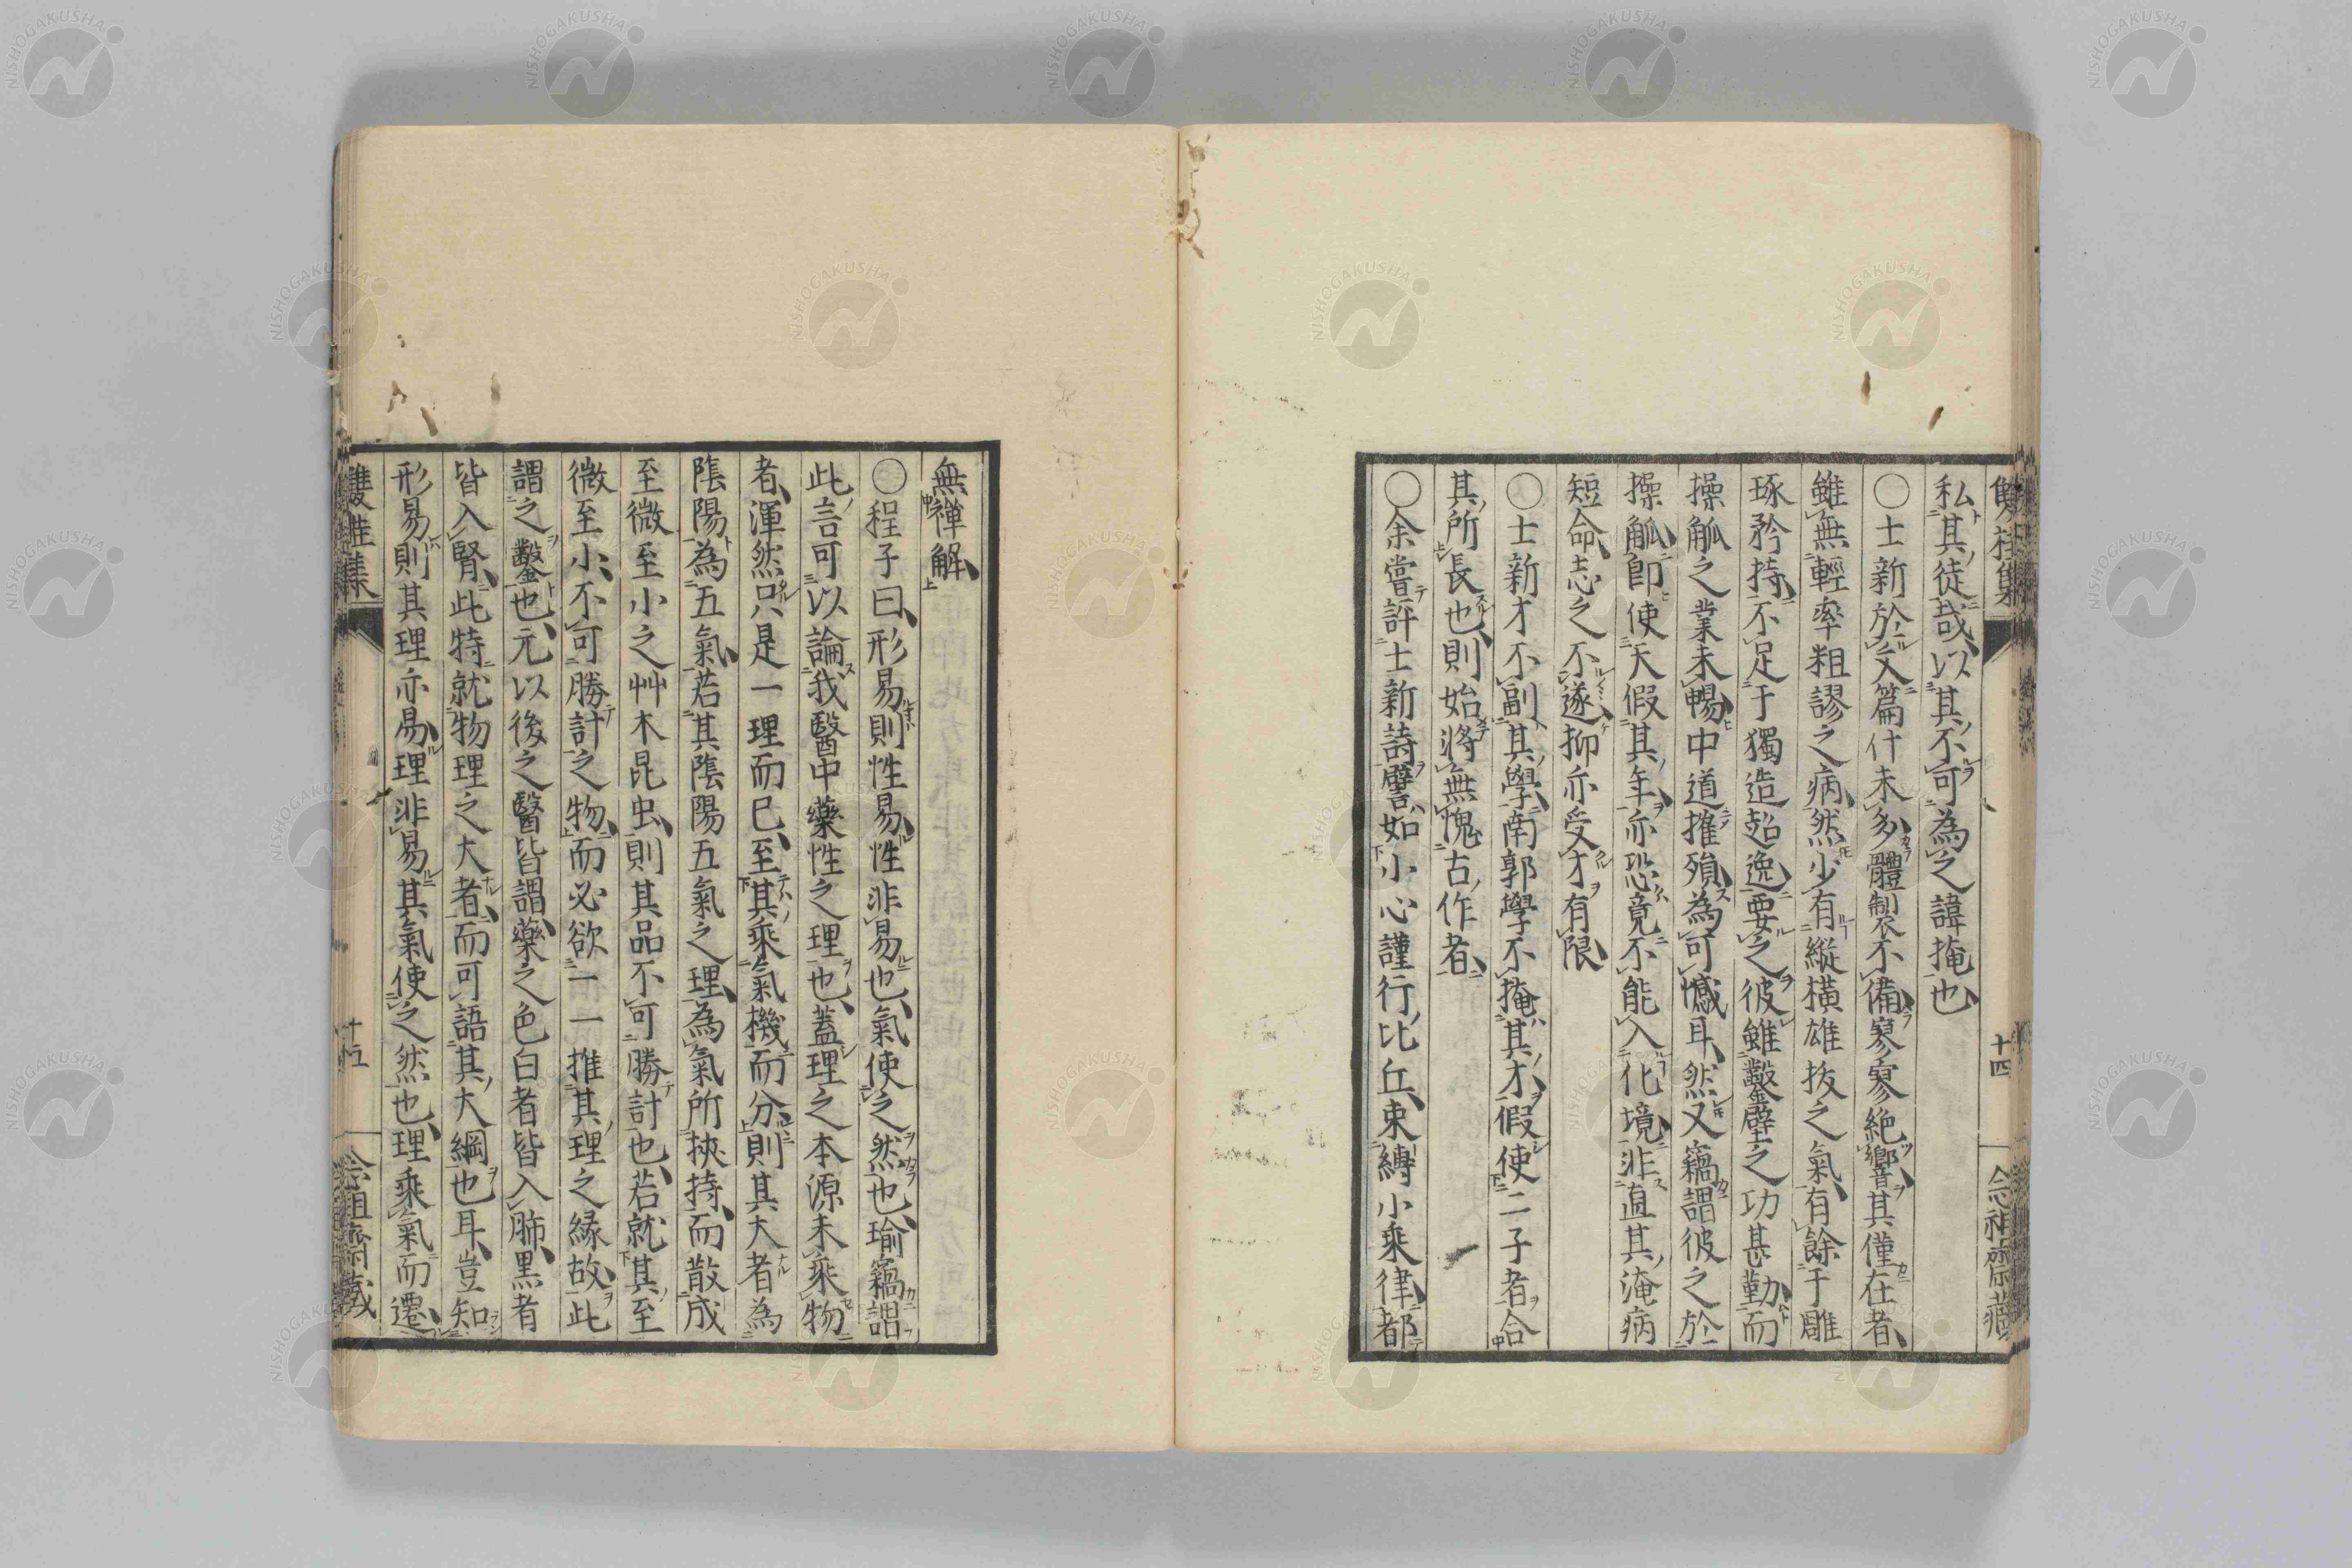 雙桂集 十四 念祖齋藏
私其徒哉以其不可為之諱掩也
○士新於文篇什未多體製不備寥寥絶響其僅在者
雖無輕率粗謬之病然少有縱橫雄抜之氣有餘于雕
琢矜持不足于獨造超逸要之彼雖鑿壁之功甚勤而
操觚之業未暢中道摧殞為可憾耳然又竊謂彼之於
操觚即使天假其年亦恐竟不能入化境非直其淹病
短命志之不遂抑亦受才有限
○士新才不副其學南郭學不掩其才假使二子者合
其所長也則始將無愧古作者
○余嘗評士新詩譬如小心謹行比丘束縛小乘律都
無禪解
○程子曰形易則性易性非易也氣使之然也瑜竊謂
此言可以論我醫中藥性之理也蓋理之本源未乘物
者渾然只是一理而已至其乘氣機而分則其大者為
陰陽為五氣若其陰陽五氣之理為氣所挾持而散成
至微至小之艸木昆虫則其品不可勝計也若就其至
微至小不可勝計之物而必欲一一推其理之縁故此
謂之鑿也元以後之醫皆謂藥之色白者皆入肺黒者
皆入腎此特就物理之大者而可語其大綱也耳豈知
形易則其理亦易理非易其氣使之然也理乘氣而遷
雙桂集 十五 念祖齋藏
NISHOGAKUSHA